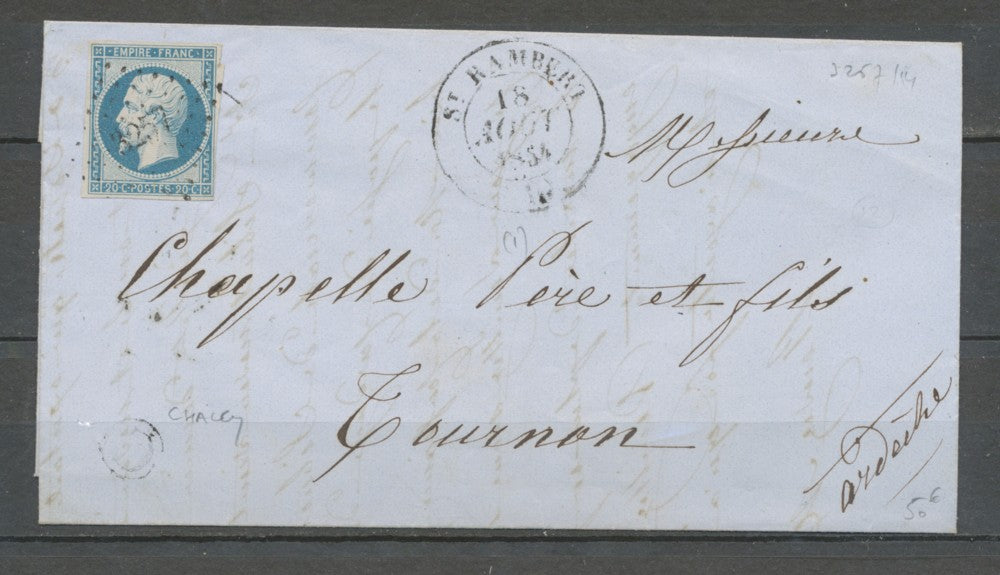 EMPIRE·FRANC
20·C·POSTES·20·C
ST RAMBERT
18
AOUT
1854
Messieurs
(1)
Chapelle Père et fils
CHALEY
Tournon
ardèche
50€